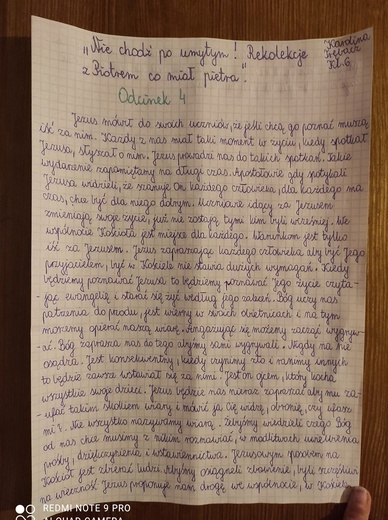 "Nie chodź po umytym! Rekolekcje
z Piotrem co miał pietra".
Karolina
Kl. 6
Odcinek 4
Jezus mówi do swoich uczniów, że jeśli chcą go poznać muszą
iść za nim. Każdy z nas miał taki moment w życiu, kiedy spotkał
Jezusa, słyszał o nim. Jezus prowadzi nas do takich spotkań. Takie
wydarzenie zapamiętamy na długi czas. Apostołowie gdy spotykali
Jezusa widzieli, że szanuje On każdego człowieka, dla każdego ma
czas, chce być dla niego dobrym. Uczniowie idący za Jezusem
zmieniają swoje życie, już nie zostają tymi kim byli wcześniej. We
wspólnocie Kościoła jest miejsce dla każdego. Warunkiem jest tylko
iść za Jezusem. Jezus zapraszając każdego człowieka aby być Jego
przyjacielem, być w Kościele nie stawia dużych wymagań. Kiedy
będziemy poznawać Jezusa to będziemy poznawać Jego życie czyta-
-jąc ewangelię i starać się żyć według jego zasad. Bóg uczy nas
patrzenia do przodu, jest wierny w swoich obietnicach i na tym
możemy opierać naszą wiarę. Angażując się możemy zacząć wygryw-
-ać. Bóg zaprasza nas do tego abyśmy sami wygrywali. Nigdy na nie
osądza. Jest konsekwentny, kiedy czynimy zło i ranimy innych
to będzie zawsze wstawiał się za nimi. Jest On ojcem, który kocha
wszystkie swoje dzieci. Jezus będzie nas nieraz zapraszać aby mu za-
-ufać takim skokiem wiary i mówić ja Cię widzę, obronię, czy ufasz
mi?. Nie wszystko nazywamy wiarą. Żebyśmy wiedzieli czego Bóg
od nas chce musimy z nim rozmawiać, w modlitwach uwielbienia
prośby, dziękczynienia i wstawiennictwa. Jezusowym sposobem na
Kościół jest zbierać ludzi. Abyśmy osiągnęli zbawienie, byli szczęśliwi
na wieczność Jezus proponuje nam drogę we wspólnocie, w Kościele
REDMI NOTE 9 PRO